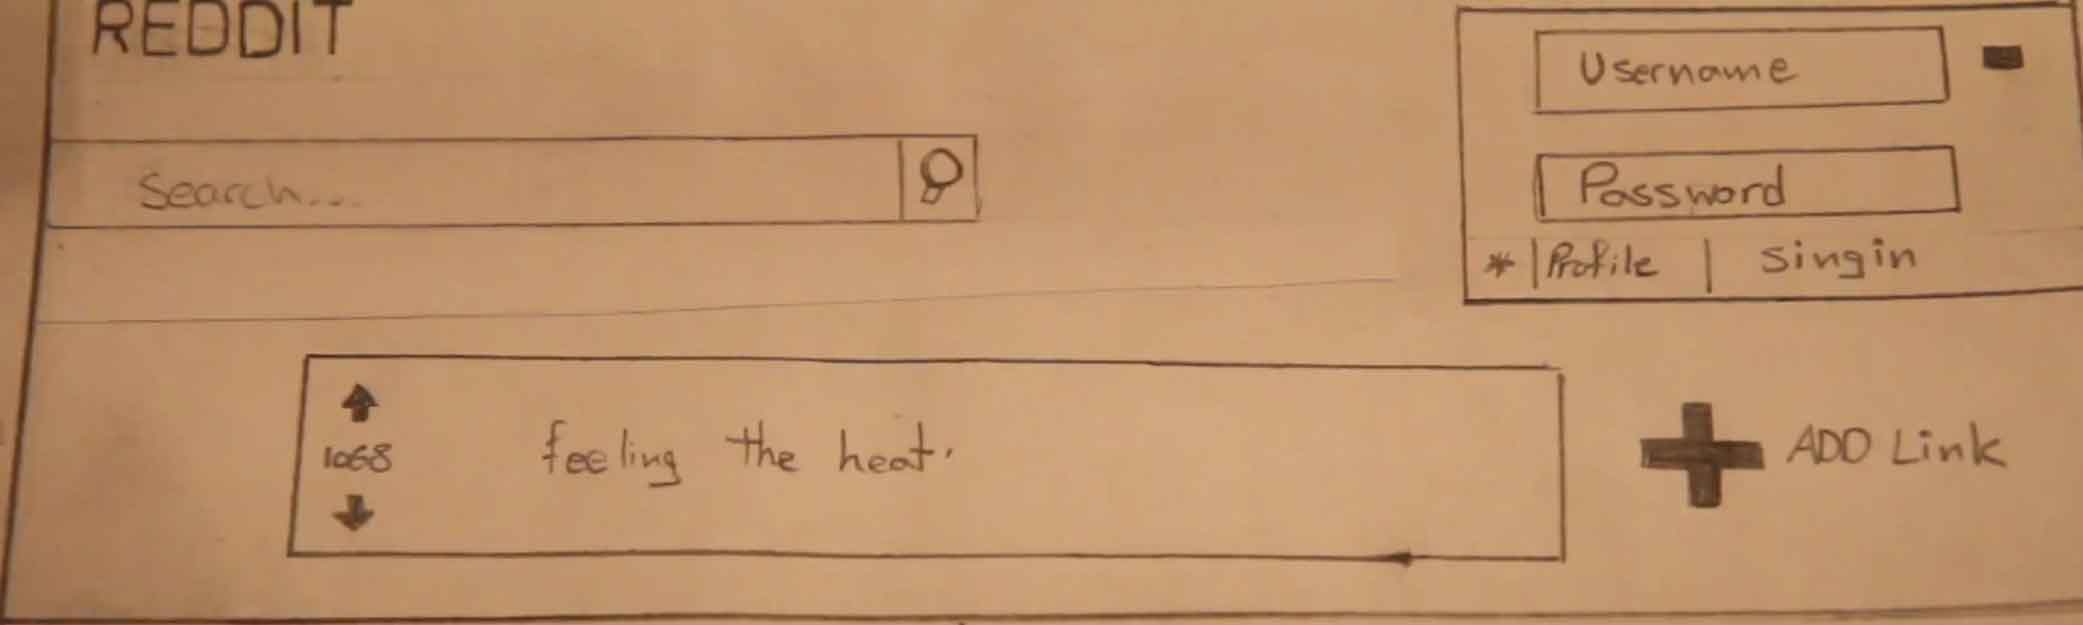 REDDIT
Username
Search...
Password
* | Profile | Singin
1068
feeling the heat.
ADD Link